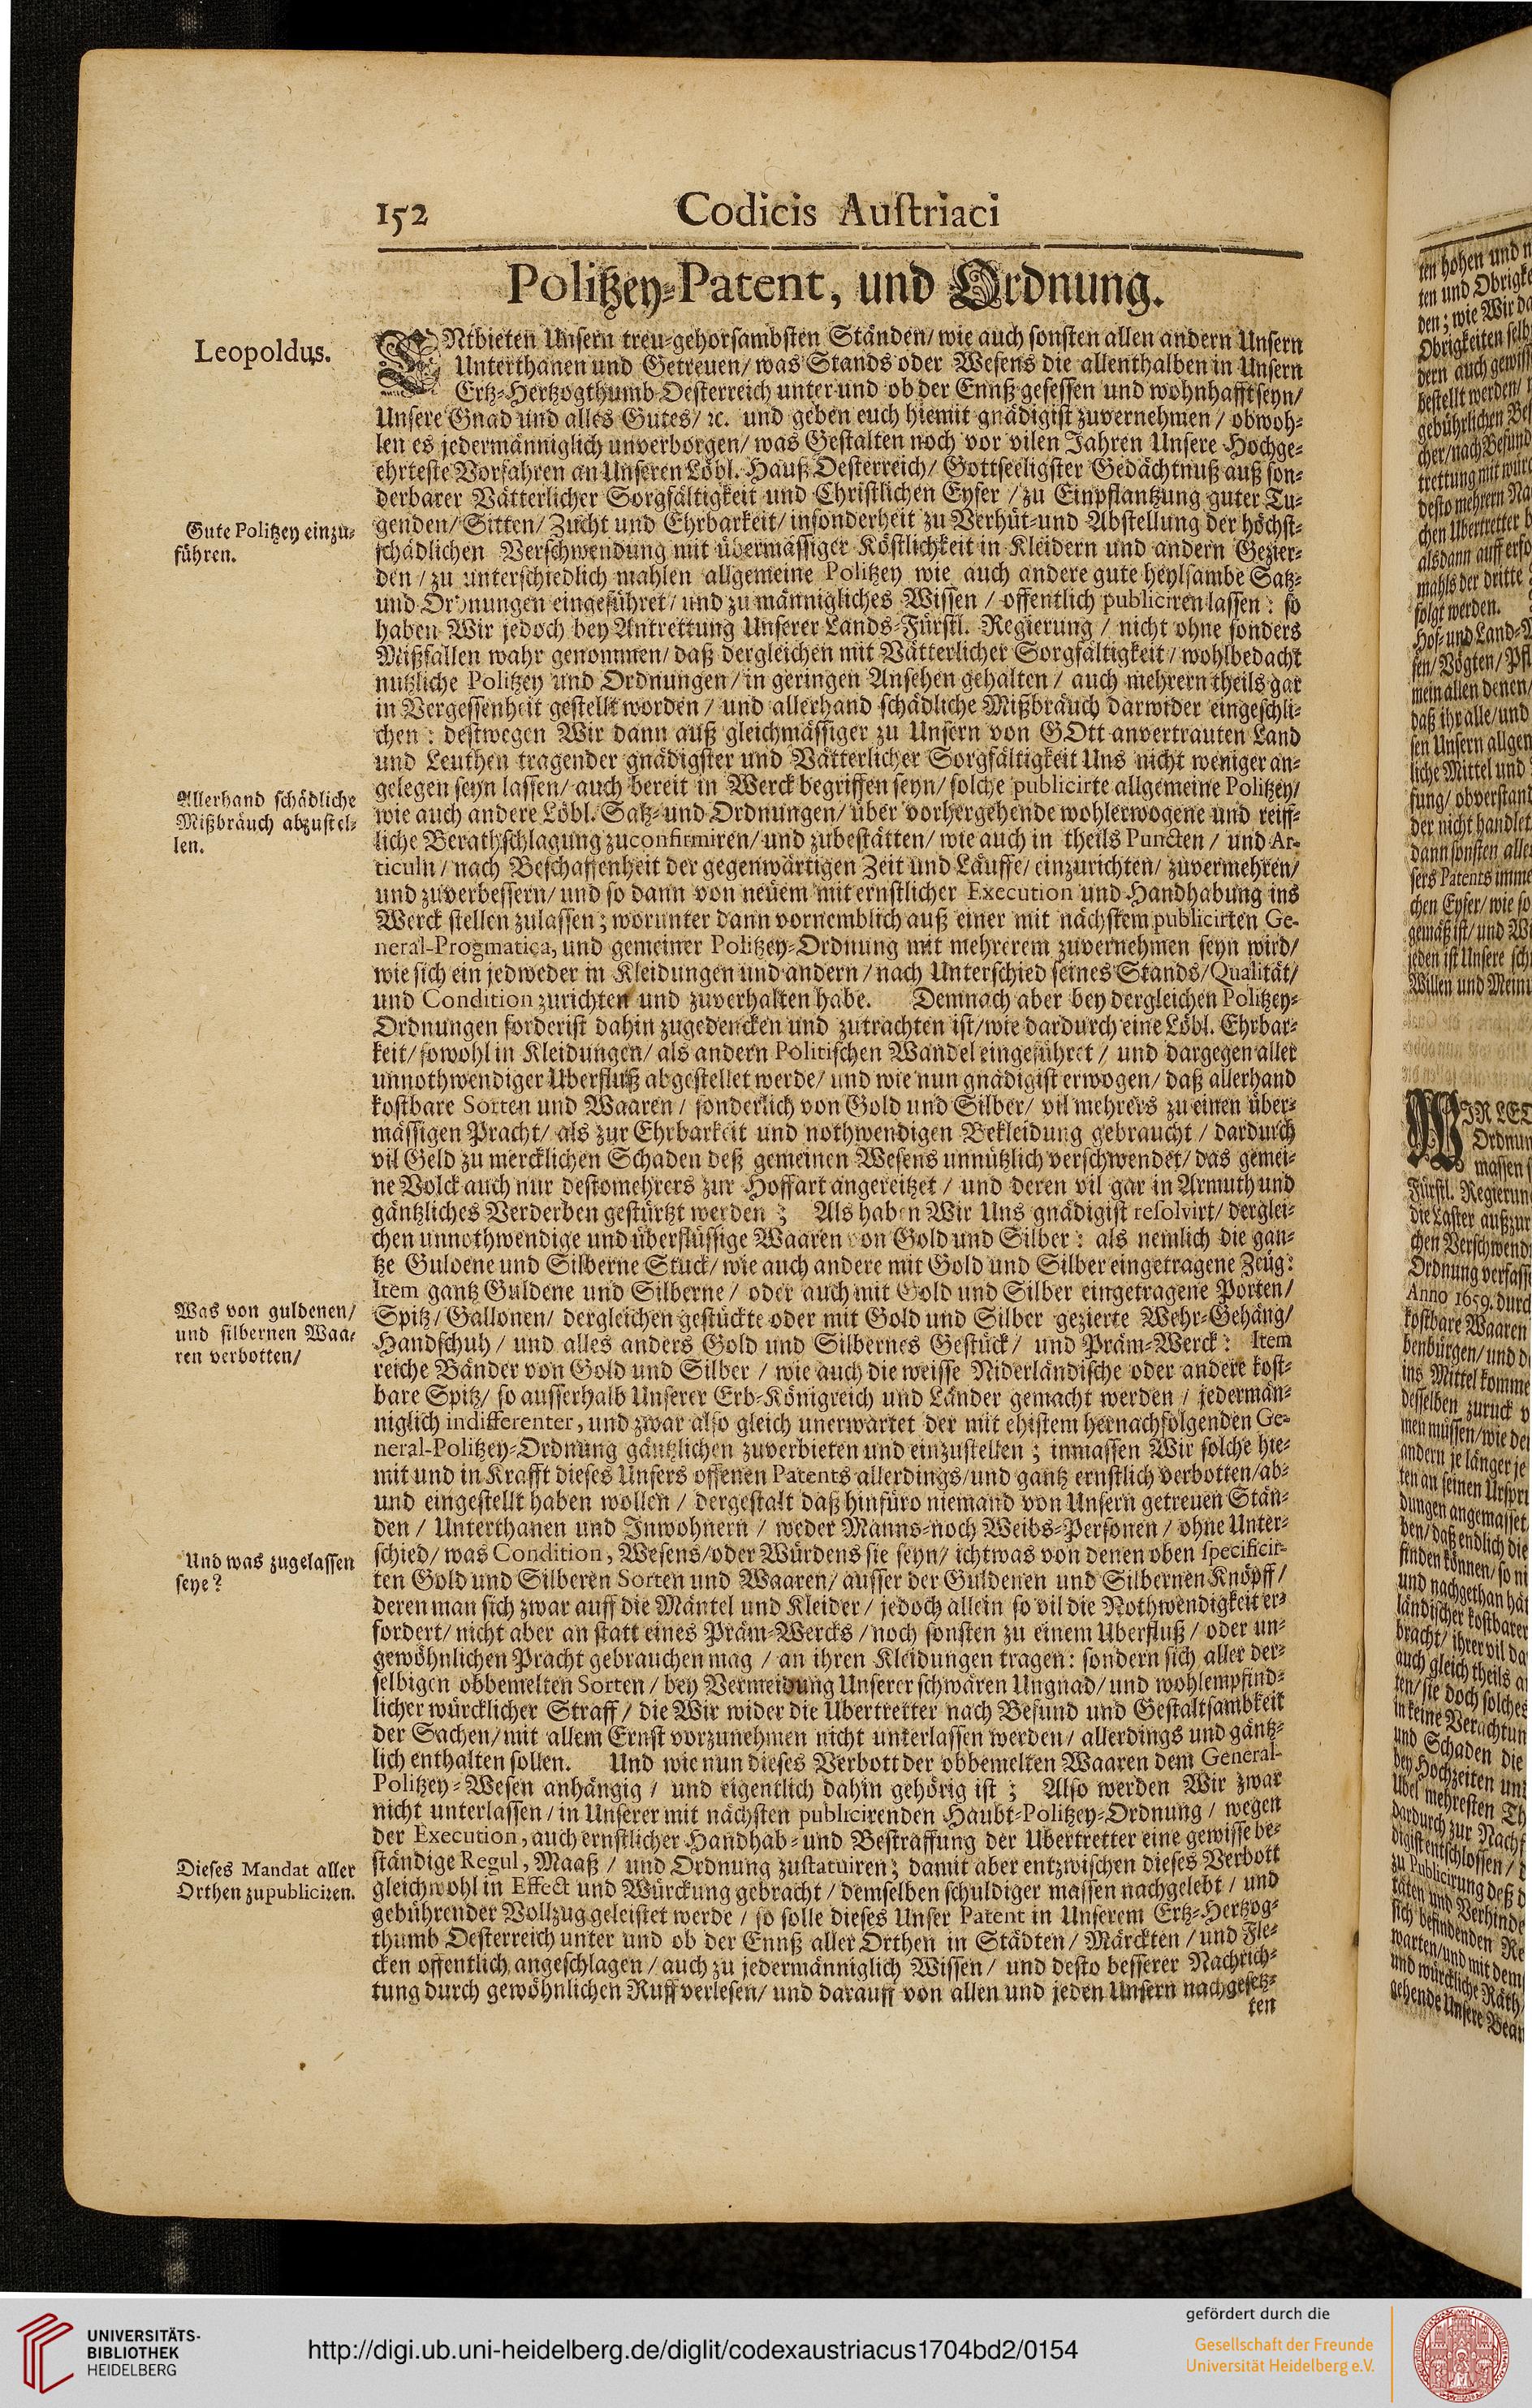 152 Codicis Auſtriaci
Politzey-Patent, und Ordnung.
Leopoldus.
ENtbieten Unſern treu-gehorſambſten Ständen/ wie auch ſonſten allen andern Unſern
Unterthanen und Getreuen/ was Stands oder Weſens die allenthalben in Unſern
Ertz-Hertzogthumb Oeſterreich unter und ob der Ennß geſeſſen und wohnhafft ſeyn/
Unſere Gnad und alles Gutes/ ꝛc. und geben euch hiemit gnädigiſt zuvernehmen / obwoh-
len es jedermänniglich unverborgen/ was Geſtalten noch vor vilen Jahren Unſere Hochge-
ehrteſte Vorfahren an Unſeren Löbl. Hauß Oeſterreich/ Gottſeeligſter Gedächtnuß auß ſon-
derbarer Vätterlicher Sorgfältigkeit und Chriſtlichen Eyfer / zu Einpflantzung guter Tu-
genden/ Sitten/ Zucht und Ehrbarkeit/ inſonderheit zu Verhüt-und Abſtellung der höchſt-
ſchädlichen Verſchwendung mit übermäſſiger Köſtlichkeit in Kleidern und andern Gezier-
den / zu unterſchiedlich mahlen allgemeine Politzey wie auch andere gute heylſambe Satz-
und Ordnungen eingeführet / und zu männigliches Wiſſen / offentlich publiciren laſſen : ſo
haben Wir jedoch bey Antrettung Unſerer Lands-Fürſtl. Regierung / nicht ohne ſonders
Mißfallen wahr genommen/ daß dergleichen mit Vätterlicher Sorgfältigkeit / wohlbedacht
nutzliche Politzey und Ordnungen / in geringen Anſehen gehalten / auch mehrern theils gar
in Vergeſſenheit geſtellt worden / und allerhand ſchädliche Mißbräuch darwider eingeſchli-
chen : deſtwegen Wir dann auß gleichmäſſiger zu Unſern von GOtt anvertrauten Land
und Leuthen tragender gnädigſter und Vätterlicher Sorgfältigkeit Uns nicht weniger an-
gelegen ſeyn laſſen/ auch bereit in Werck begriffen ſeyn/ ſolche publicirte allgemeine Politzey/
wie auch andere Löbl. Satz-und Ordnungen/ über vorhergehende wohlerwogene und reiff-
liche Berathſchlagung zuconfirmiren/ und zubeſtätten/ wie auch in theils Puncten / und Ar-
ticuln / nach Beſchaffenheit der gegenwärtigen Zeit und Läuffe/ einzurichten/ zuvermehren/
und zuverbeſſern/ und ſo dann von neuem mit ernſtlicher Execution und Handhabung ins
Werck ſtellen zulaſſen ; worunter dann vornemblich auß einer mit nächſtem publicirten Ge-
neral-Progmatica, und gemeiner Politzey-Ordnung mit mehrerem zuvernehmen ſeyn wird/
wie ſich ein jedweder in Kleidungen und andern / nach Unterſchied ſeines Stands/ Qualität/
und Condition zurichten und zuverhalten habe. Demnach aber bey dergleichen Politzey-
Ordnungen forderiſt dahin zugedencken und zutrachten iſt/ wie dardurch eine Löbl. Ehrbar-
keit/ ſowohl in Kleidungen/ als andern Politiſchen Wandel eingeführet / und dargegen aller
unnothwendiger Uberfluß abgeſtellet werde/ und wie nun gnädigiſt erwogen/ daß allerhand
koſtbare Sorten und Waaren / ſonderlich von Gold und Silber/ vil mehrers zu einen über-
mäſſigen Pracht/ als zur Ehrbarkeit und nothwendigen Bekleidung gebraucht / dardurch
vil Geld zu mercklichen Schaden deß gemeinen Weſens unnützlich verſchwendet/ das gemei-
ne Volck auch nur deſtomehrers zur Hoffart angereitzet / und deren vil gar in Armuth und
gäntzliches Verderben geſtürtzt werden ; Als haben Wir Uns gnädigiſt reſolvirt/ derglei-
chen unnothwendige und überflüſſige Waaren von Gold und Silber : als nemlich die gan-
tze Guldene und Silberne Stuck/ wie auch andere mit Gold und Silber eingetragene Zeug:
Item gantz Guldene und Silberne / oder auch mit Gold und Silber eingetragene Porten/
Spitz/ Gallonen/ dergleichen geſtückte oder mit Gold und Silber gezierte Wehr-Gehäng/
Handſchuh / und alles anders Gold und Silbernes Geſtück / und Präm-Werck : Item
reiche Bänder von Gold und Silber / wie auch die weiſſe Niderländiſche oder andere koſt-
bare Spitz/ ſo auſſerhalb Unſerer Erb-Königreich und Länder gemacht werden / jedermän-
niglich indifferenter, und zwar alſo gleich unerwartet der mit ehiſtem hernachfolgenden Ge-
neral-Politzey-Ordnung gäntzlichen zuverbieten und einzuſtellen ; inmaſſen Wir ſolche hie-
mit und in Krafft dieſes Unſers offenen Patents allerdings/ und gantz ernſtlich verbotten/ ab-
und eingeſtellt haben wollen / dergeſtalt daß hinfüro niemand von Unſern getreuen Stän-
den / Unterthanen und Inwohnern / weder Manns-noch Weibs-Perſonen / ohne Unter-
ſchied/ was Condition, Weſens/ oder Würdens ſie ſeyn/ ichtwas von denen oben ſpecificir-
ten Gold und Silberen Sorten und Waaren/ auſſer der Guldenen und Silbernen Knöpff/
deren man ſich zwar auff die Mäntel und Kleider / jedoch allein ſo vil die Nothwendigkeit er-
fordert/ nicht aber an ſtatt eines Präm-Wercks / noch ſonſten zu einem Uberfluß / oder un-
gewöhnlichen Pracht gebrauchen mag / an ihren Kleidungen tragen: ſondern ſich aller der-
ſelbigen obbemelten Sorten / bey Vermeidung Unſerer ſchwären Ungnad/ und wohlempfind-
licher würcklicher Straff / die Wir wider die Ubertretter nach Befund und Geſtaltſambkeit
der Sachen/ mit allem Ernſt vorzunehmen nicht unterlaſſen werden/ allerdings und gäntz-
lich enthalten ſollen. Und wie nun dieſes Verbott der obbemelten Waaren dem General-
Politzey-Weſen anhängig / und eigentlich dahin gehörig iſt ; Alſo werden Wir zwar
nicht unterlaſſen / in Unſerer mit nächſten publicirenden Haubt-Politzey-Ordnung / wegen
der Execution, auch ernſtlicher Handhab-und Beſtraffung der Ubertretter eine gewiſſe be-
ſtändige Regul, Maaß / und Ordnung zuſtatuiren ; damit aber entzwiſchen dieſes Verbott
gleichwohl in Effect und Würckung gebracht / demſelben ſchuldiger maſſen nachgelebt / und
gebührender Vollzug geleiſtet werde / ſo ſolle dieſes Unſer Patent in Unſerem Ertz-Hertzog-
thumb Oeſterreich unter und ob der Ennß aller Orthen in Städten/ Märckten / und Fle-
cken offentlich angeſchlagen / auch zu jedermänniglich Wiſſen / und deſto beſſerer Nachrich-
tung durch gewöhnlichen Ruff verleſen/ und darauff von allen und jeden Unſern nachgeſetz-
ten
Gute Politzey einzu-
führen.
Allerhand ſchädliche
Mißbräuch abzuſtel-
len.
Was von guldenen/
und ſilbernen Waa-
ren verbotten/
Und was zugelaſſen
ſeye?
Dieſes Mandat aller
Orthen zupubliciren.
ten hohen und
ten und Obrigke
den; wie Wir da
Obrigkeiten ſelb
dern auch gewiſſ
beſtellt werden/
gebührlichen
cher/ nach Befund
trettung mit
deſto mehrern Na
chen Ubertretter
alsdann auff erfo
mahls der dritte
folgt werden.
Hof-und Land-
ſen/ Vögten/ Pfl
mein allen denen/
daß ihr alle/ und
ſen Unſern allgem
liche Mittel und
der nicht handlet
dann ſonſten alle
ſers Patents imme
chen Eyfer/ wie ſo
gemäß iſt/ und Wi
jeden iſt Unſere
Willen und Mein
WIR LE
Ordnun
maſſen
Fürſtl. Regierun
die Laſter außzu
chen Verſchwend
Ordnung verfaſſ
Anno 1659. durch
koſtbare Waaren
ins Mittel komme
deſſelben zuruck
men müſſen/ wie
andern je länger je
ten an ſeinen Urſpr
dungen angemaſſet
ben/ daß endlich die
finden können/ ſo
und nachgethan hä
ländiſcher koſtbarer
bracht/ ihrer vil da
auch gleich theils
ten/ ſie doch ſolches
in keine Verachtun
und Schaden die
bey Hochzeiten
Ubel mehreſten
dardurch zur Nacht
digiſt entſchloſſen/
zu Publicirung deß
ſich befindenden
warten/ und mit dem
und würckliche Räth
gehende Unſere Bea
UNIVERSITÄTS-
BIBLIOTHEK
HEIDELBERG
http://digi.ub.uni-heidelberg.de/diglit/codexaustriacus1704bd2/0154
gefördert durch die
Gesellschaft der Freunde
Universität Heidelberg e.V.